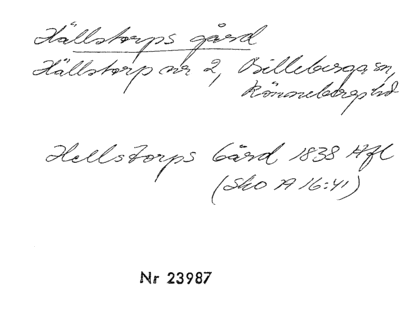 Hällstorps gård
Hällstorp nr 2, Billeberga sn,
Rönnebergs hd
Hellstorps Gård 1838 Afl
(Sko A 16:41)
Nr 23987